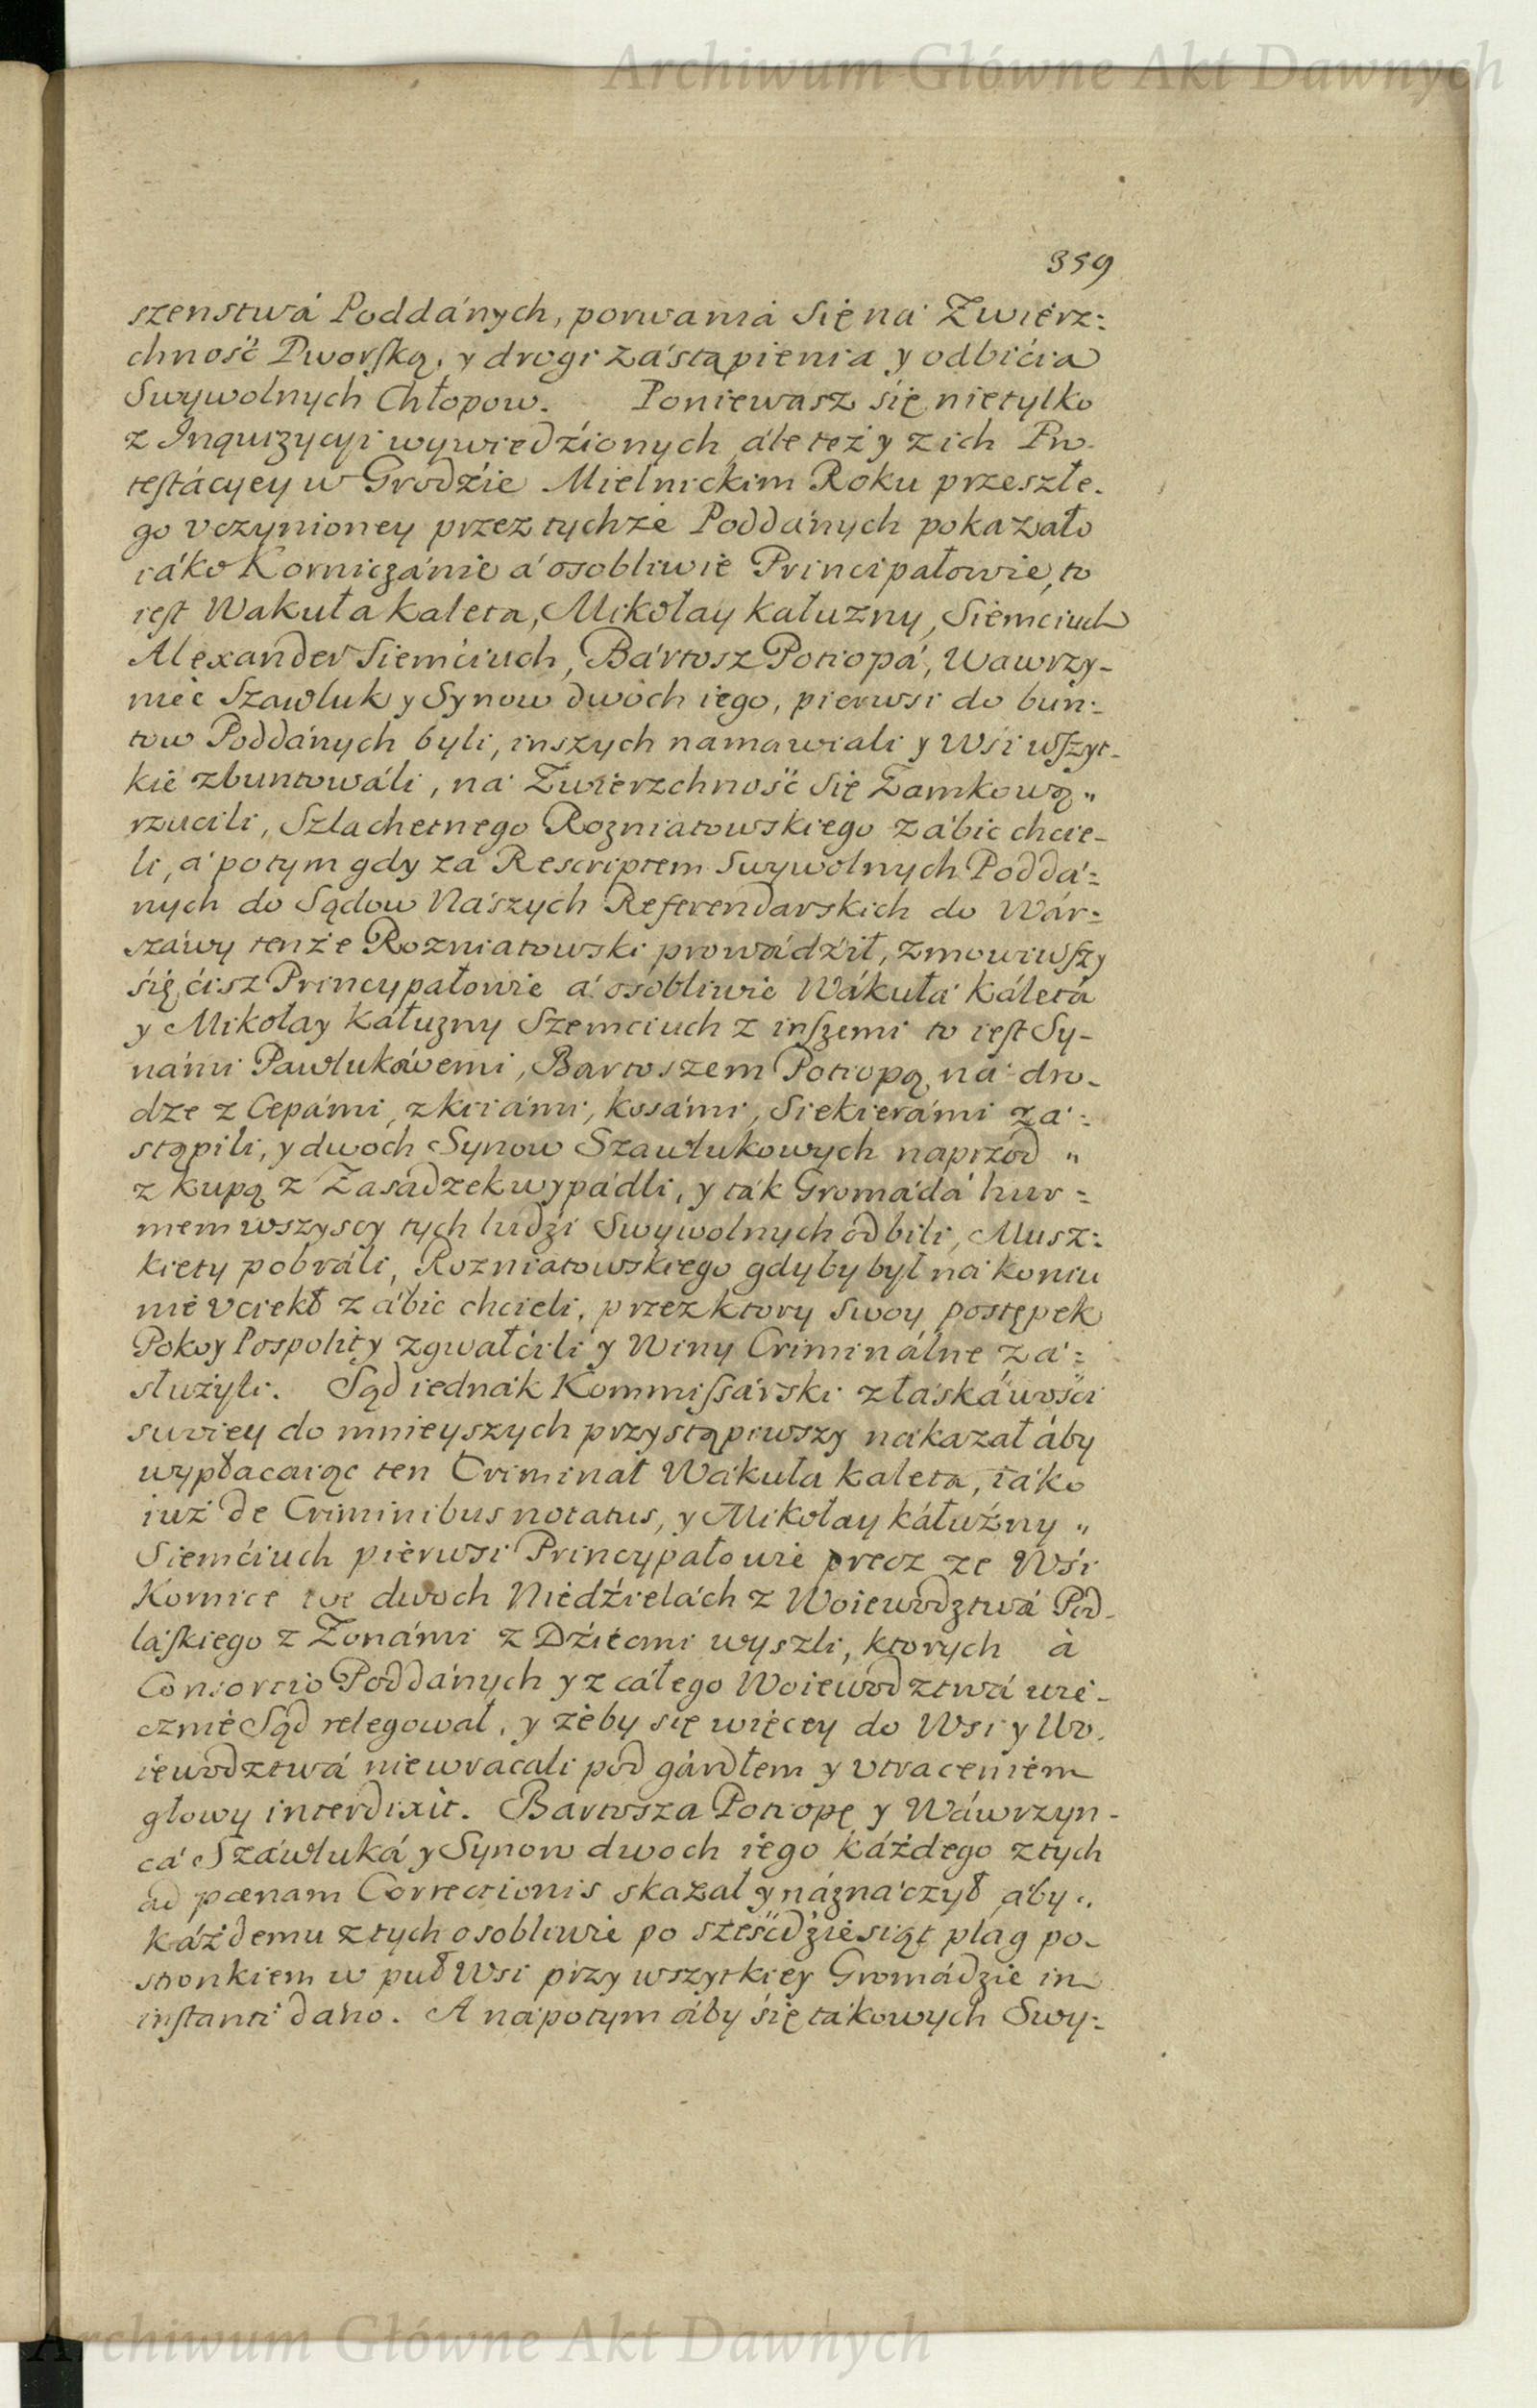 Archiwum Główne Akt Dawnych
359
szenstwá Poddánych, porwania się ná Zwierz:
chność Dworską, y drogi zástąpienia y odbićia
Swywolnych Chłopow. Poniewasz się nietylko
z Inquizycyi wywiedźionych, ále też y z ich Pro-
testácyey w Grodźie Mielnickim Roku przeszłe-
go vczynioney przez tychże Poddánych pokazało
iáko Korniczánie á osobliwie Principałowie, to
iest Wakuła kaleta, Mikołay kałuzny, Siemciuch
Alexander Siemciuch, Bártosz Potiopá, Wawrzy-
niec Szawluk y Synow dwoch iego, pierwsi do bun:
tow Poddánych byli, inszych namawiali y Wśi wszyt-
kie zbuntowáli, ná Zwierzchność Się Zamkową „
rzucili, Szlachetnego Rozniatowskiego zábic chcie-
li, á potym gdy za Rescriptem Swywolnych Poddá:
nych do Sądow Nászych Referendarskich do Wár:
száwy tenże Rozniatowski prowádźił, zmowiwszy
się ćisz Princypałowie á osobliwie Wákuła káletá
y Mikołay kałuzny Szemciuch z inszemi to iest Sy-
námi Pawlukowemi, Bartoszem Potiopą, ná dro-
dze z Cepámi, z kiiámi, kosámi, Siekierámi zá:
stąpili, y dwoch Synow Szawlukowych naprzod „
z kupą z Zasadzek wypádli, y ták Gromádá hur:
mem wszyscy tych ludzi Swywolnych odbili, Musz:
kiety pobráli, Rozniatowskiego gdyby był ná koniu
nie vciekł zábic chcieli, przez ktory Swoy postępek
Pokoy Pospolity zgwałcili y Winy Criminálne zá:
służyli. Sąd iednák Kommissárski z łáskáwośći
swoiey do mnieyszych przystąpiwszy nakazał áby
wypłacaiąc ten Criminał Wákuła kaleta, iáko
iuż de Criminibus notatus, y Mikołay káłużny „
Siemćiuch pierwsi Princypałowie precz ze Wśi
Kornice we dwoch Niedźielách z Woiewodztwá Pod-
láskiego z Żonámi z Dźiećmi wyszli, ktorych à
Consorcio Poddánych y z cáłego Woiewodztwá wie-
cznie Sąd relegował, y żeby się więcey do Wsi y Wo-
iewodztwá niewracali pod gárdłem y vtraceniem
głowy interdixit. Bartosza Potiopę y Wáwrzyn-
cá Száwluká y Synow dwoch iego káżdego z tych
ad pœnam Correctionis skazał y náznáczył, áby „
káżdemu z tych osobliwie po sześćdźiesiąt plag po-
stronkiem w puł Wsi przy wszytkiey Gromádzie in
instanti dano. A nápotym áby się tákowych Swy:
Archiwum Główne Akt Dawnych